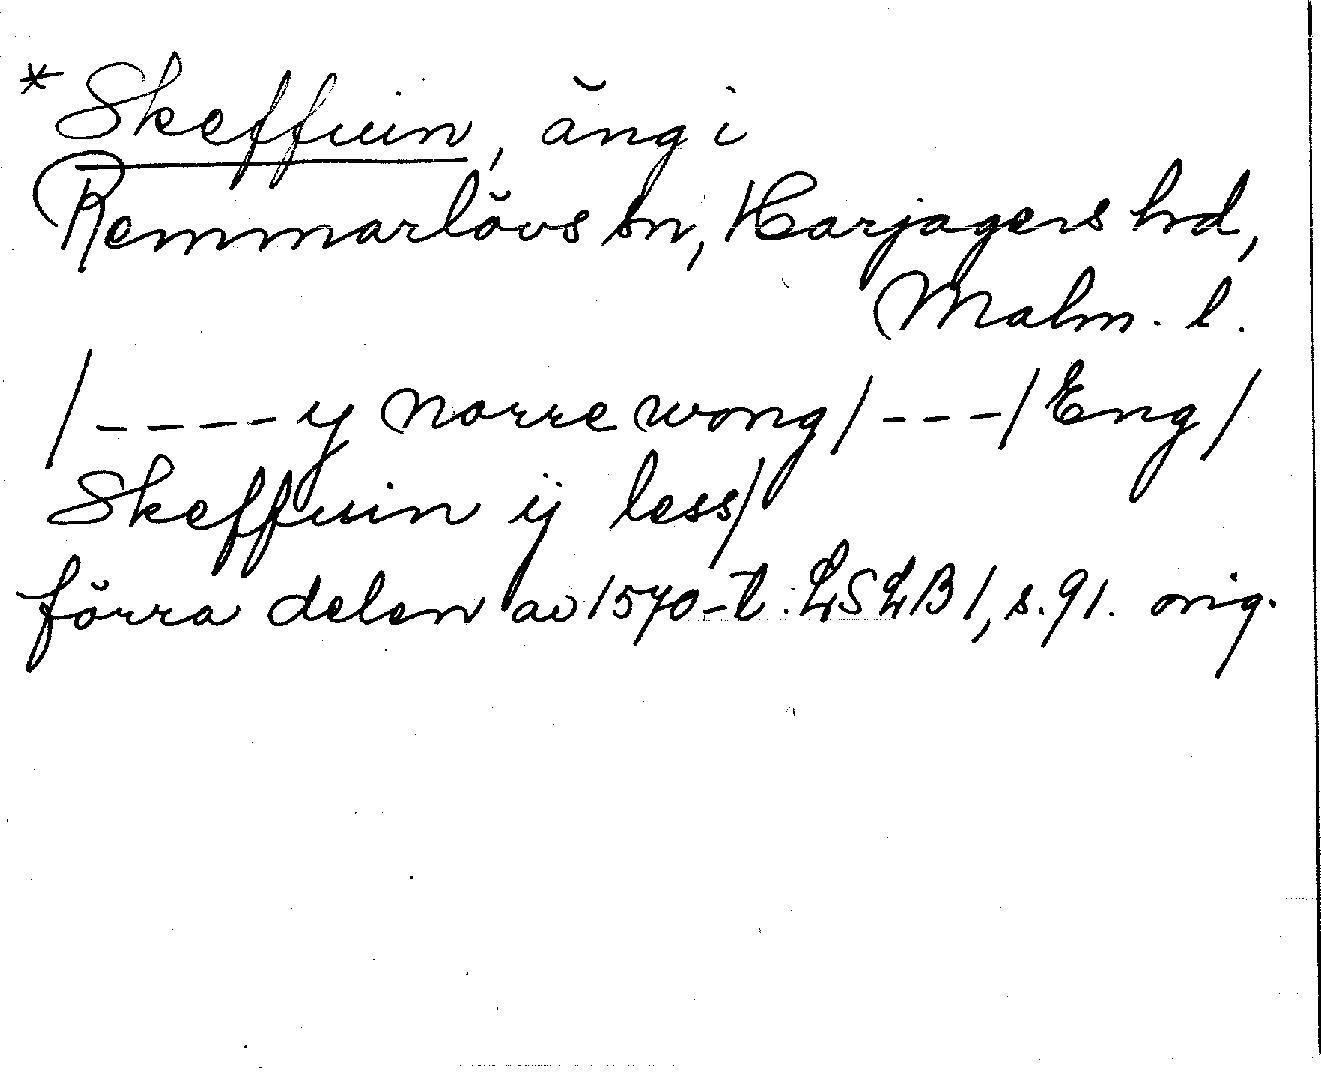 * Skeffuin, äng i
Remmarlövs sn, Harjagers hrd,
Malm. l.
/----- y Norre wong/---/Eng/
Skeffuin ij less/
förra delen av 1570-t. LSLB 1, s. 91. orig.